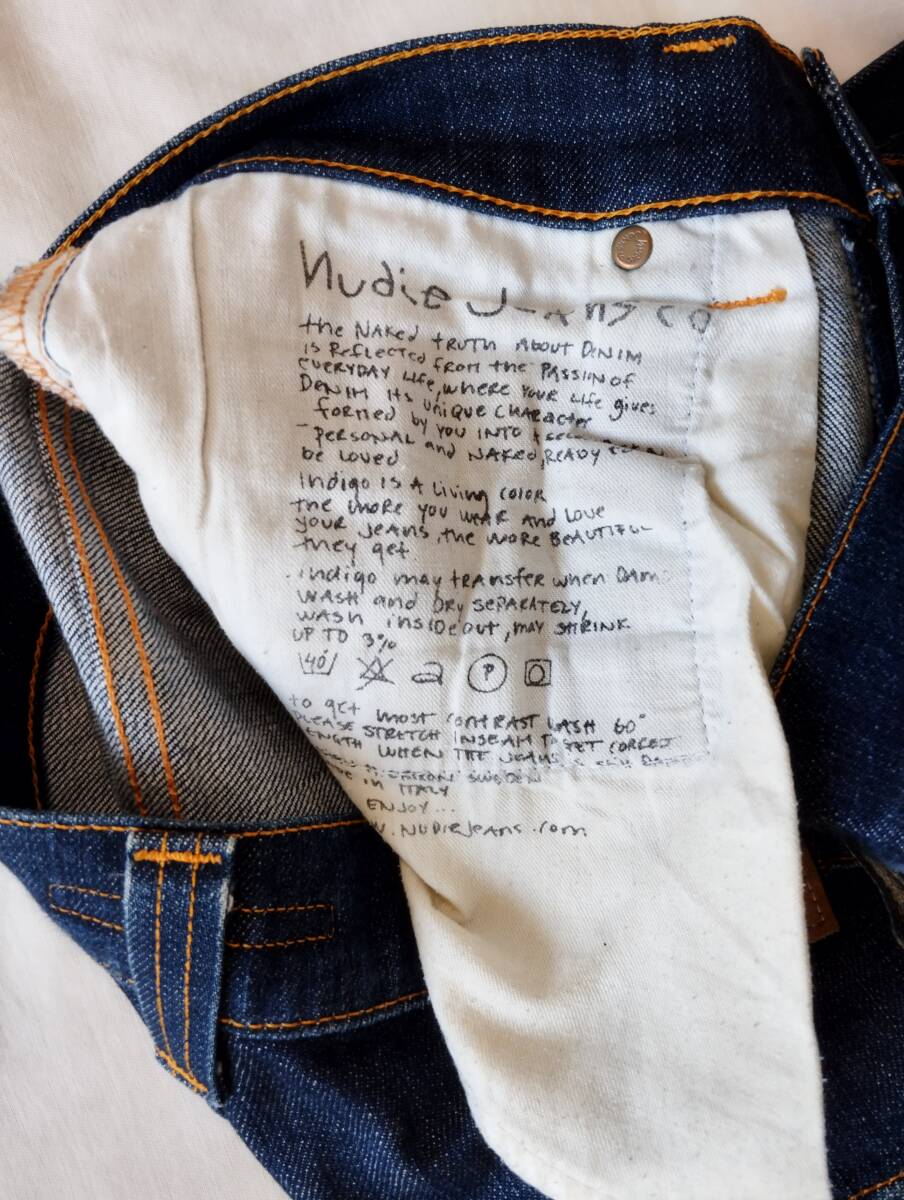 Nudie Jeans co
the NAKED tRUTH About DENIM
is REFLECTED from the PASSION of
EVERYDAY Life, where YOUR Life gives
DENIM its unique CHARACTER
formed by you INTO A
- PERSONAL and NAKED, READY
be LOVED
INDIGO IS A Living COLOR
the MORE YOU WEAR AND LOVE
YOUR JEANS, the MORE BEAUTIFUL
they get
indigo may tRANSfer when DAMP
WASH and DRY SEPARATELY,
WASH INSIDEOUT, MAY SHRINK
UP TO 3%
40 P
to get MOST CONTRAST WASH 60°
PLEASE STRETCH INSEAM TO GET CORRECT
LENGTH WHEN THE JEANS
SWEDEN
IN ITALY
ENJOY...
W.NUDIEJEANS.COM